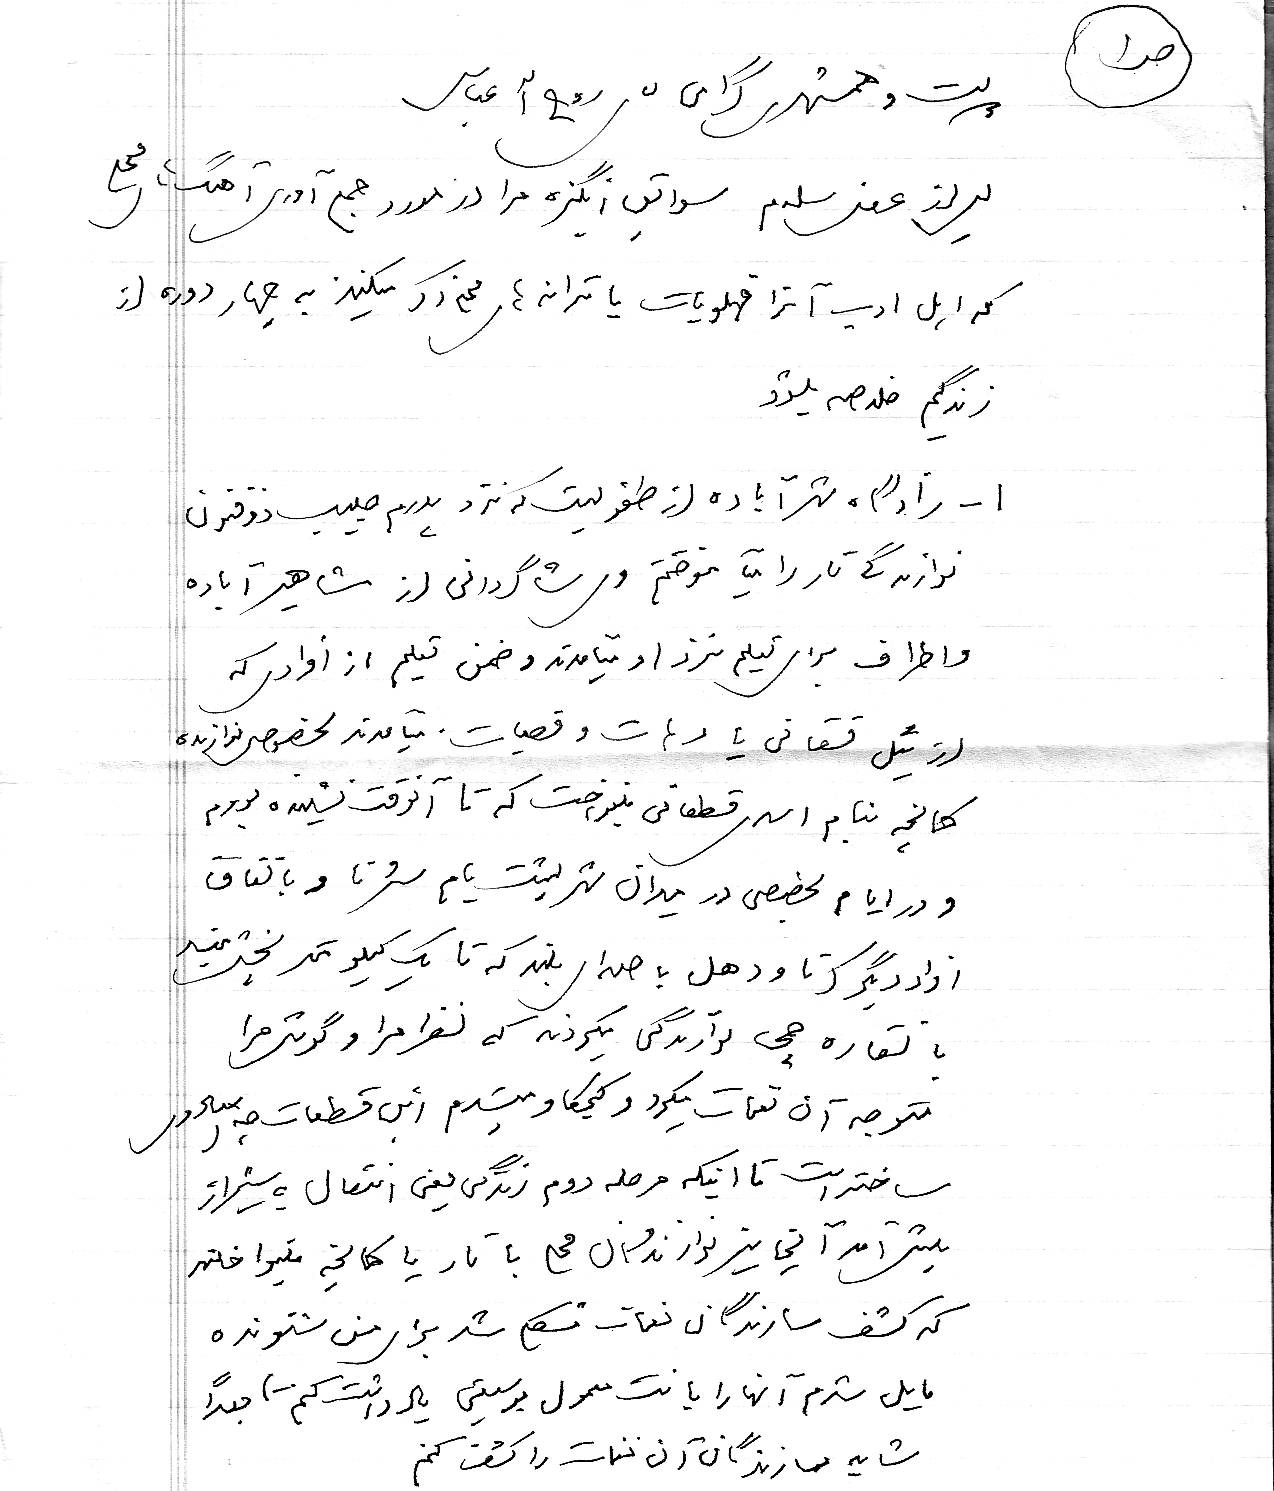 صدا
دوست و همشهری گرامی آ عباس
پس از عرض سلام سوابق انگیزه مرا در مورد جمع آوری آهنگهای محلی
که اهل ادب آنرا فهلویات یا ترانه های محلی ذکر میکنند به چهار دوره از
زندگیم خلاصه میشود
۱- زادگاه شهر آباده از طفولیت که نزد پدرم حبیب ذوفنون
نوازندگی تار را می آموختم وی شاگردانی از مشاهیر آباده
و اطراف برای تعلیم نزد او میآمدند و ضمن تعلیم از افرادی که
از ییل قشقائی یا دهات و قصبات میآمدند بخصوص نوازنده
کمانچه بنام قطعاتی مینواخت که تا آنوقت نشنیده بودم
و در ایام بخصوصی در میدان شهر پشت بام سرنا و باتفاق
افراد دیگر کرنا و دهل با صدای بلند که تا یک کیلومتر پخش میشد
با نقاره چی نوازندگی میکردند که نظر مرا و گوش مرا
متوجه آن نغمات میکرد و کنجکاو میشدم این قطعات چه
ساخته است تا اینکه مرحله دوم زندگی یعنی انتقال به شیراز
پیش آمد آنجا نیز نوازندگان محلی با تار یا کمانچه مینواختند
که کشف سازندگان نغمات مشکل شد برای من شنونده
مایل شدم آنها را با نت معمول موسیقی یادداشت کنم تا بعداً
شاید سازندگان آن نغمات را کشف کنم